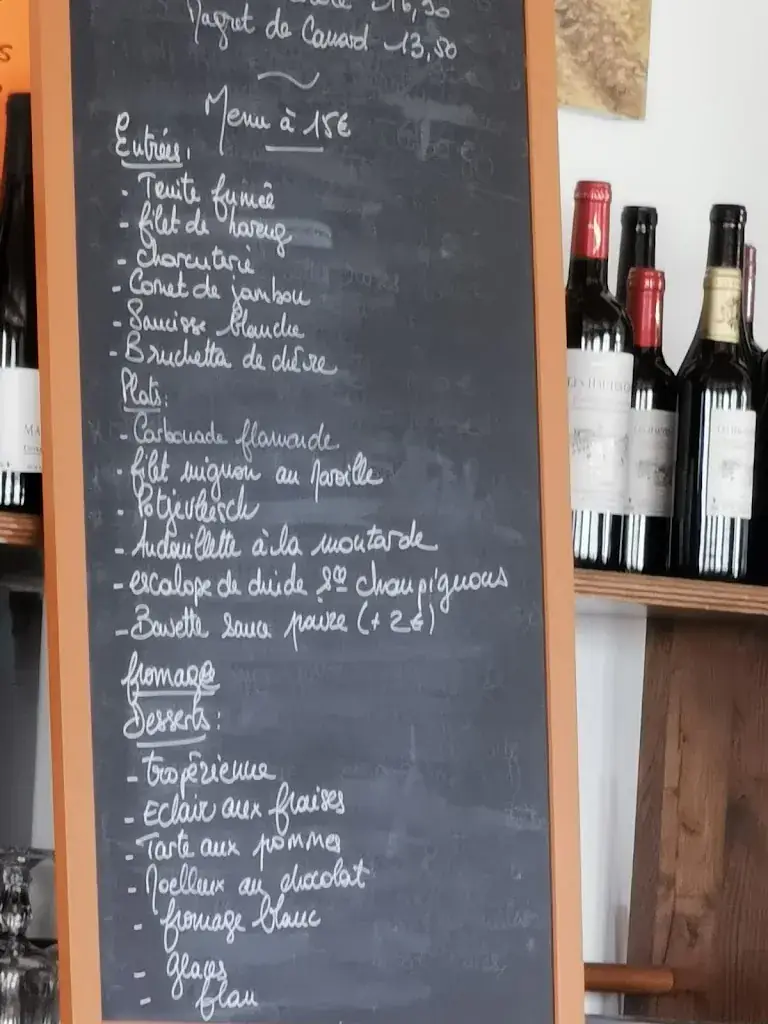 16,50
Magret de Canard 13,50
Menu à 15€
Entrées:
- Truite fumée
- filet de hareng
- Charcuterie
- Cornet de jambon
- Saucisse blanche
- Bruchetta de chèvre
Plats:
- Carbonade flamande
- filet mignon au Maroille
- Potjevleesch
- Andouillette à la moutarde
- escalope de dinde sce champignons
- Bavette sauce poivre (+ 2€)
fromages
Desserts:
- tropézienne
- Eclair aux fraises
- Tarte aux pommes
- Moelleux au chocolat
- fromage blanc
- glaces
- flan